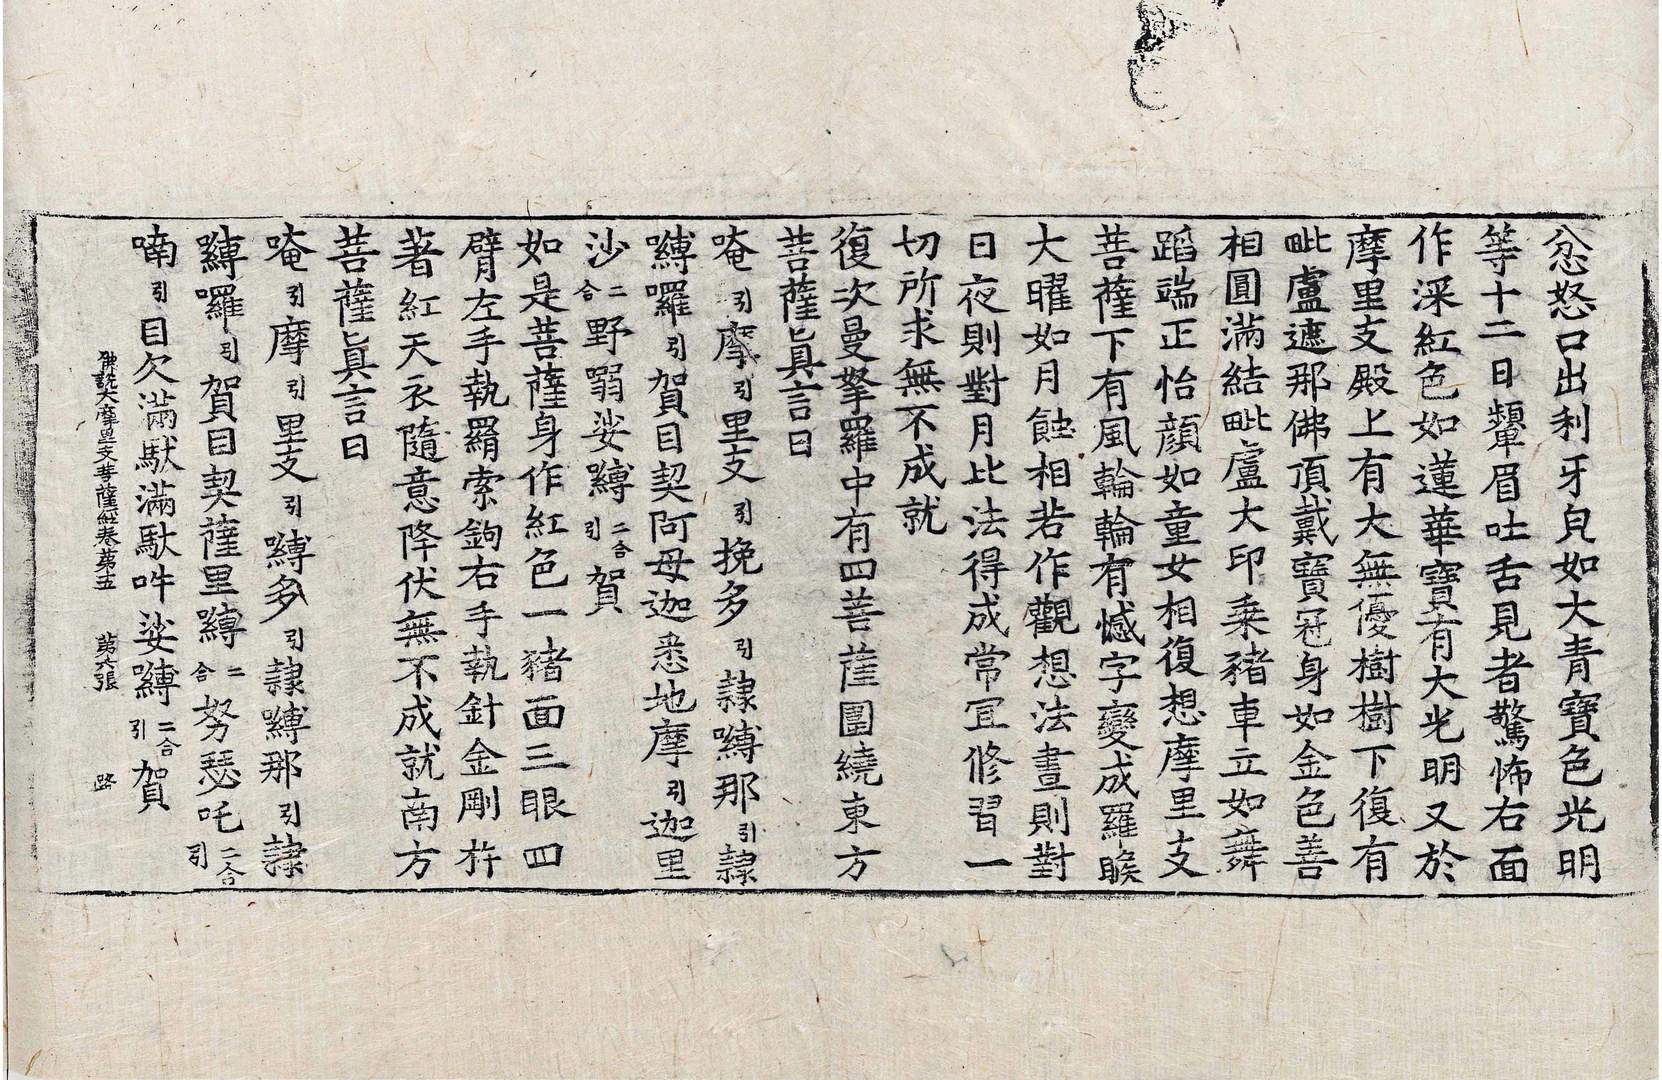 忿怒口出利牙皃如大青寶色光明
等十二日顰眉吐舌見者驚怖右面
作深紅色如蓮華寶有大光明又於
摩里支殿上有大無優樹樹下復有
毗盧遮那佛頂戴寶冠身如金色善
相圓滿結毗盧大印乘豬車立如舞
蹈端正怡顔如童女相復想摩里支
菩薩下有風輪輪有憾字變成羅睺
大曜如月蝕相若作觀想法晝則對
日夜則對月比法得成常冝修習一
切所求無不成就
復次曼拏羅中有四菩薩圍繞東方
菩薩眞言曰
唵引摩引里支引挽多引隷嚩那引隷
嚩囉引賀目契阿母迦悉地摩引迦里
沙二合野弱娑嚩二合引賀
如是菩薩身作紅色一豬面三眼四
臂左手執羂索鉤右手執針金剛杵
著紅天衣隨意降伏無不成就南方
菩薩眞言曰
唵引摩引里支引嚩多引隷嚩那引隷
嚩囉引賀目契薩里嚩二合努瑟吒二合引
喃引目欠滿馱滿馱吽娑嚩二合引賀
佛說大摩里支菩薩經卷第五 第六張 路